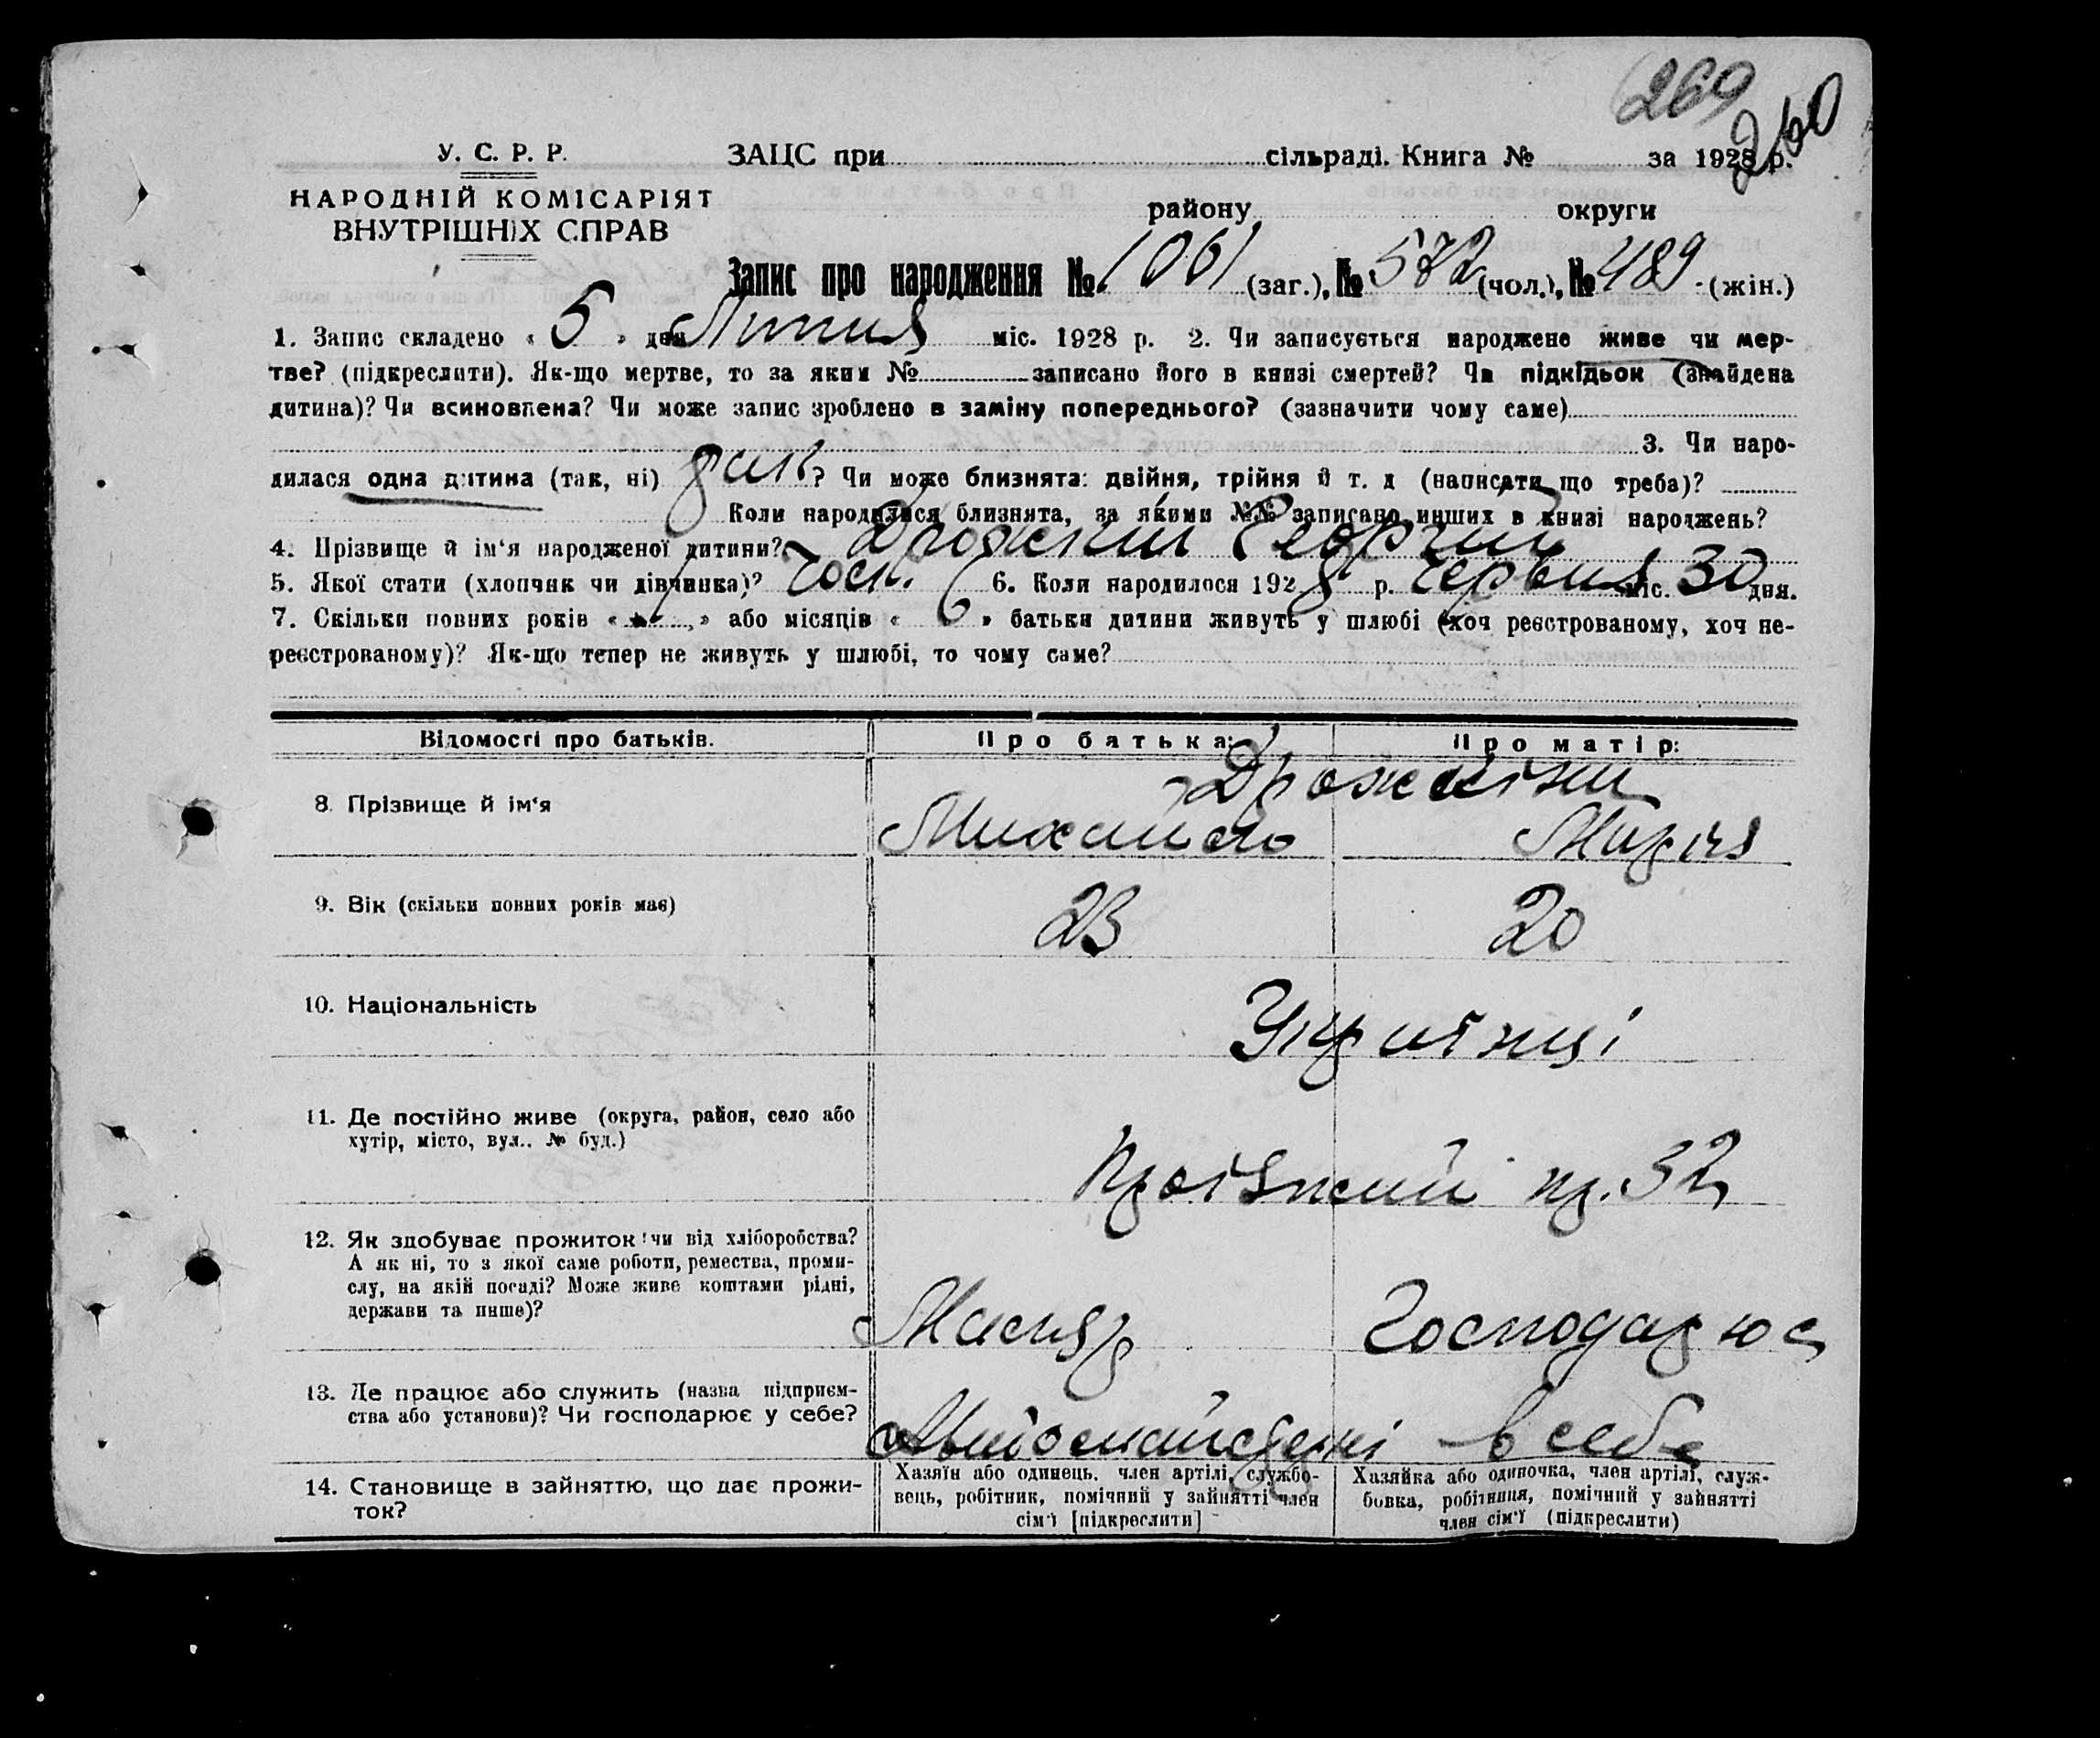 269
260
У. С. Р. Р.
ЗАЦС при сільраді. Книга № за 1928 р.
НАРОДНІЙ КОМІСАРІЯТ
ВНУТРІШНІХ СПРАВ
району округи
Запис про народження № 1061 (заг.), № 572 (чол.), № 489 (жін.)
1. Запис складено « 5 » дня Липня міс. 1928 р. 2. Чи записується народжене живе чи мер-
тве? (підкреслити). Як-що мертве, то за яким № записано його в книзі смертей? Чи підкідьок (знайдена
дитина)? Чи всиновлена? Чи може запис зроблено в заміну попереднього? (зазначити чому саме)
3. Чи наро-
дилася одна дитина (так, ні) ? Чи може близнята: двійня, трійня й т. д (написати що треба)?
Коли народилися близнята, за якими №№ записано инших в книзі народжень?
4. Прізвище й ім'я народженої дитини? Георгий
5. Якої стати (хлопчик чи дівчинка)? 6. Коли народилося 1928 р. Червня міс. 30 дня.
7. Скільки повних років « » або місяців « 6 » батьки дитини живуть у шлюбі (хоч реєстрованому, хоч не-
реєстрованому)? Як-що тепер не живуть у шлюбі, то чому саме?
Відомості про батьків. Про батька: Про матір:
8. Прізвище й ім'я
Михайло Марія
9. Вік (скільки повних років має) 23 20
10. Національність
Українці
11. Де постійно живе (округа, район, село або
хутір, місто, вул.. № буд.)
пр. 32
12. Як здобуває прожиток: чи від хліборобства?
А як ні, то з якої саме роботи, ремества, проми-
слу, на якій посаді? Може живе коштами рідні,
держави та инше)?
Маляр Господарює
13. Де працює або служить (назва підприєм-
ства або установи)? Чи господарює у себе?
в себе
14. Становище в зайняттю, що дає прожи-
ток?
Хазяїн або одинець, член артілі, службо-
вець, робітник, помічний у зайнятті член
сім'ї [підкреслити]
Хазяйка або одиночка, член артілі, служ-
бовка, робітниця, помічний у зайнятті
член сім'ї (підкреслити)